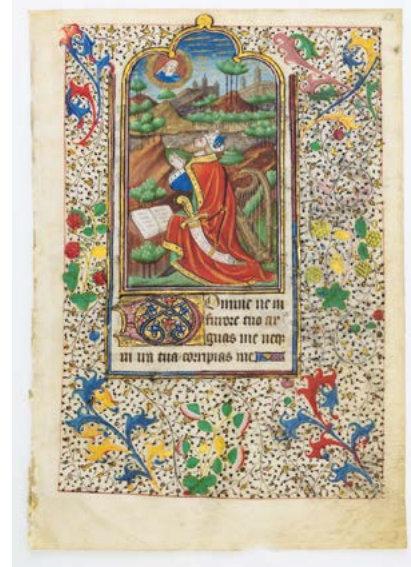 Domine ne in
furore tuo ar
guas me neq
in ira tua corripias me